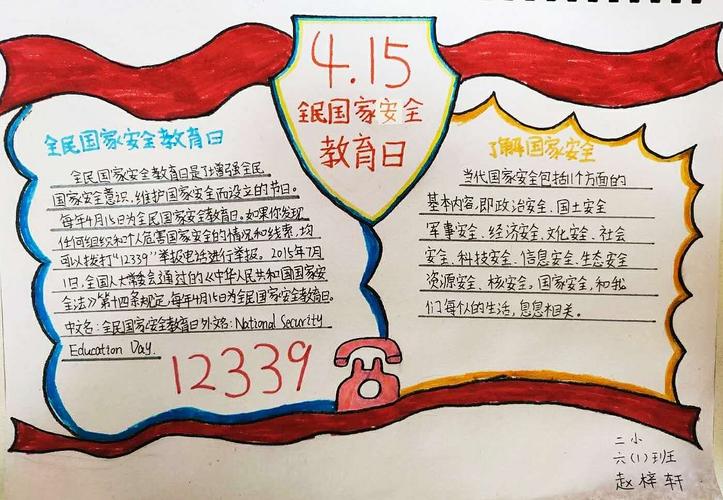 4.15
全民国家安全
教育日
全民国家安全教育日
全民国家安全教育日是了增强全民
国家安全意识，维护国家安全而设立的节日。
每年4月15日为全民国家安全教育日。如果你发现
任何组织和个人危害国家安全的情况和线索，均
可以拨打“12339”举报电话进行举报。2015年7月
1日，全国人大常委会通过的《中华人民共和国国家安
全法》第十四条规定，每年4月15日为全民国家安全教育日。
中文名：全民国家安全教育日外文名：National Security
Education Day.
12339
了解国家安全
当代国家安全包括11个方面的
基本内容，即政治安全、国土安全
军事安全、经济安全、文化安全、社会
安全、科技安全、信息安全、生态安全
资源安全、核安全，国家安全，和我
们每个人的生活，息息相关。
二小
六(1)班
赵梓轩